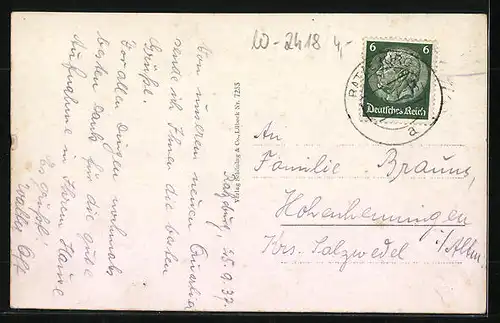 W-2418 4,-
6 6
Deutsches Reich
RAT
Ratzeburg, 25.9.37.
Von unserem neuen Quartier
sende ich Ihnen die besten
Grüße.
Vor allen Dingen nochmals
besten Dank für die gute
Aufnahme in Ihrem Hause
Es grüßt!
Walter
An
Familie Brauns,
Hohenhenningen
Krs. Salzwedel i/Altm.
Verlag Schöning & Co., Lübeck Nr. 7255